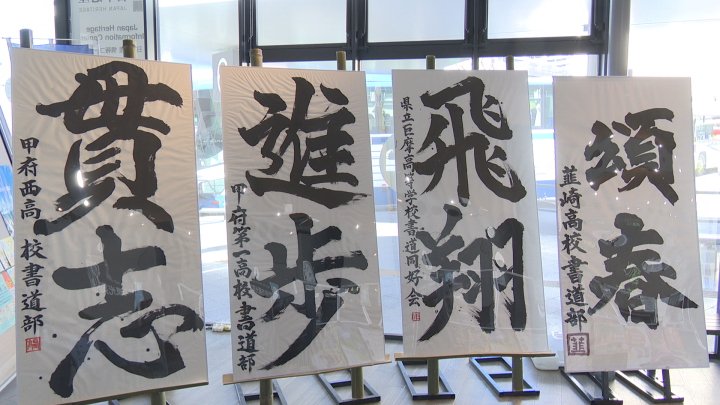 Japan Heritage
Information Center
貫志
甲府西高校書道部
進歩
甲府第一高校書道部
飛翔
県立巨摩高等学校書道同好会
頌春
韮崎高校書道部
韮